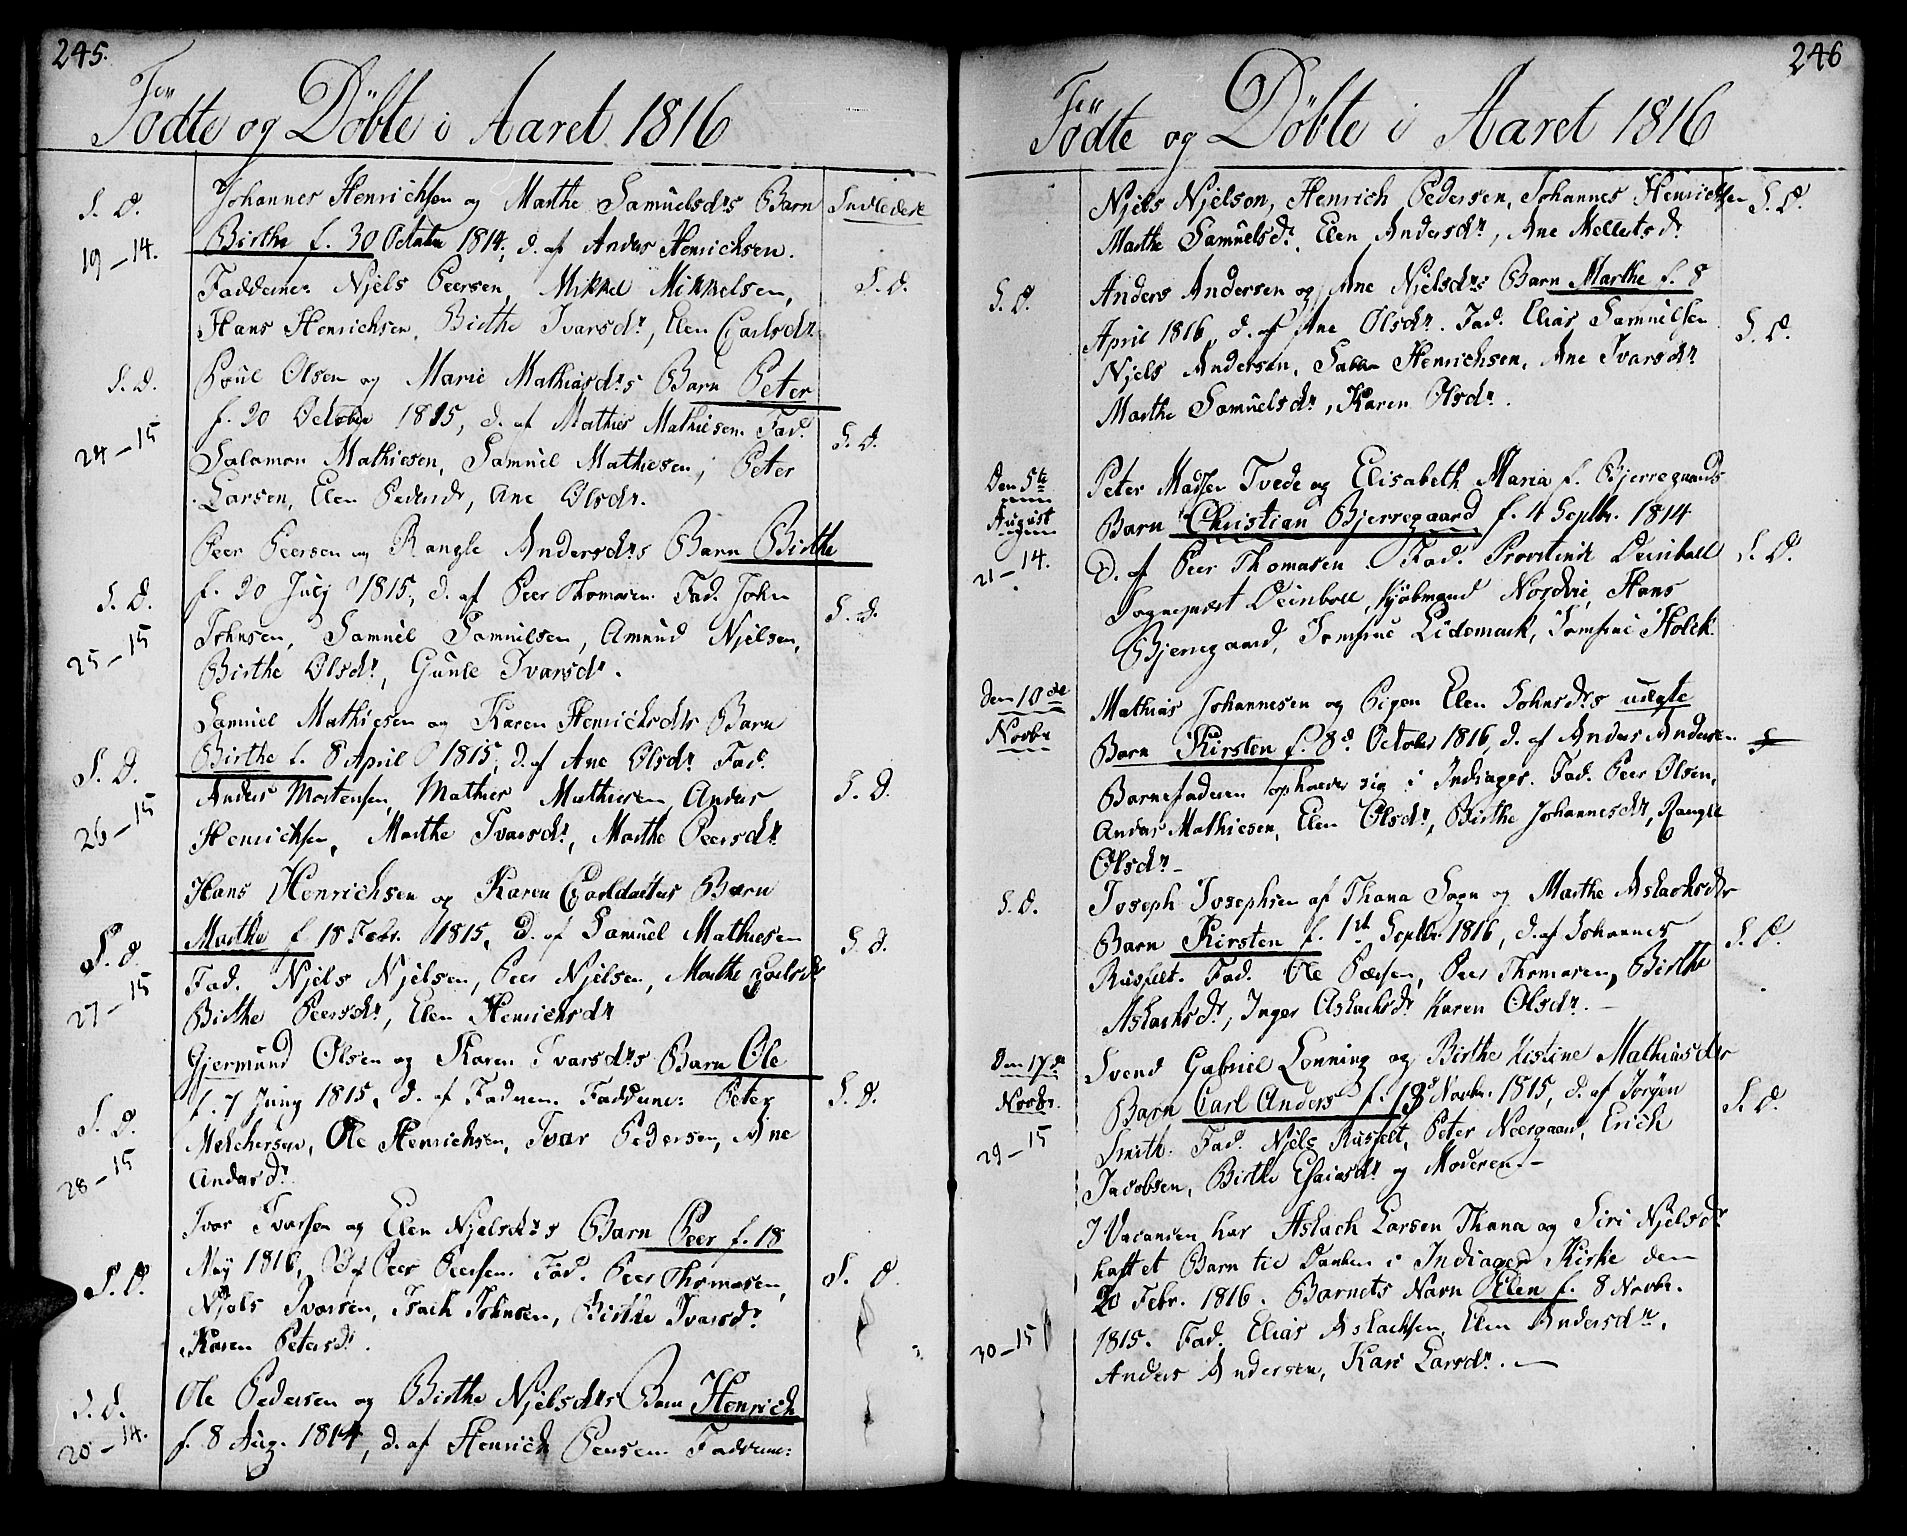 245.
Fødte og Döbte i Aaret 1816
S. D. Johannes Henrichsen og Marthe Samuelsdrs Barn Indledede
19-14. Birthe f. 30 October 1814, d. af Anders Henrichsen.
Fadderne: Njels Peersen, Mikkel Mikkelsen, S. D.
Hans Henrichsen, Birthe Ivarsdr, Elen Carlsdr
S. D. Poul Olsen og Marie Mathiasdrs Barn Peter
f. 20 October 1815, d. af Mathies Mathiesen. Fad.
24-15 Salamon Mathiesen, Samuel Mathiesen, Peter S. D.
Larsen, Elen Pedersdr, Ane Olsdr.
Peer Peersen og Rangle Andersdrs Barn Birthe
S. D. f. 20 July 1815, d. af Peer Thomasen. Fad. John
Johnsen, Samuel Samuelsen, Amund Njelsen, S. D.
25-15 Birthe Olsdr, Gunle Ivarsdr.
Samuel Mathiesen og Karen Henrichsdrs Barn
S. D. Birthe f. 8 April 1815, d. af Ane Olsdr. Fad.
Anders Mortensen, Mathies Mathiesen, Anders S. D.
26-15 Henrichsen, Marthe Ivarsdr, Marthe Peersdr
Hans Henrichsen og Karen Carldatters Barn
S. D. Marthe f 18 Febr. 1815, D. af Samuel Mathiesen S. D.
27-15 Fad. Njels Njelsen, Peer Njelsen, Marthe Carlsdr
Birthe Peersdr, Elen Henrichsdr
Gjermund Olsen og Karen Ivarsdrs Barn Ole
S. D. f. 7 Juny 1815, d. af Faderen. Fadderne: Peter S. D.
Melchersen, Ole Henrichsen, Ivar Pedersen, Ane
28-15 Andersdr.
Ivar Ivarsen og Elen Njelsdrs Barn Peer f. 18
S. D. May 1816, D. af Peer Peersen. Fad. Peer Thomasen, S. D.
Njels Ivarsen, Isach Johnsen, Birthe Ivarsdr
Karen Petersdr.
S. D. Ole Pedersen og Birthe Njelsdrs Barn Henrich
20-14. f. 8 Aug. 1814, d. af Henrich Peersen. Fadderne:
246
Fødte og Döbte i Aaret 1816
Njels Njelson, Henrich Pedersen, Johannes Henrichsen S. D.
Marthe Samuelsdr, Elen Andersdr, Ane Mellertsdr
S. D. Anders Andersen og Ane Njelsdrs Barn Marthe f. 8
April 1816, d. af Ane Olsdr. Fad. Elias Samuelsen S. D.
Njels Andersen, Henrichsen, Ane Ivarsdr
Marthe Samuelsdr, Karen Olsdr.
Den 5te Peter Madsen Tvede og Elisabeth Maria f. Bjerregaards
August Barn Christian Bjerregaard f. 4 Septbr. 1814
21-14. D. af Peer Thomasen. Fad. Provstinde Deinboll S. D.
Sognepræst Deinboll, Kjöbmand Nordvi, Hans
Bjerregaard, Jomfrue Lidemark, Jomfrue Holck.
Den 10de Mathias Johannesen og Pigen Elen Johnsdrs uægte
Novbr Barn Kirsten f. 8d. October 1816, d. af Anders Andersen
Barnefaderen opholder sig i Indiager. Fad. Peer Olsen,
Anders Mathiesen, Elen Olsdr, Birthe Johannesdr, Rangle
Olsdr -
S. D. Joseph Josephsen af Thana Sogn og Marthe Aslachsdrs
Barn Kirsten f. 1st Septbr. 1816, d. af Johannes S. D.
Russfelt. Fad. Ole Peersen, Peer Thomasen, Birthe
Aslachsdr, Inger Aslachsdr Karen Olsdr. -
Den 17de Svend Gabriel Lonning og Birthe Kistine Mathiasdrs
Novbr. Barn Carl Anders f. 13d Novbr. 1815, d. af Jörgen S. D.
29-15 Smith. Fad. Njels Russfelt, Peter Neergaard, Erich
Jacobsen, Birthe Esaiasdr og Moderen. -
I Vacancen har Aslach Larsen Thana og Siri Njelsdr
havt et Barn til Daaben i Indiager Kirke den
20 Febr. 1816. Barnets Navn Elen f. 8 Novbr.
30-15 1815. Fad. Elias Aslachsen, Elen Andersdr,
Anders Andersen, Kari Larsdr. -